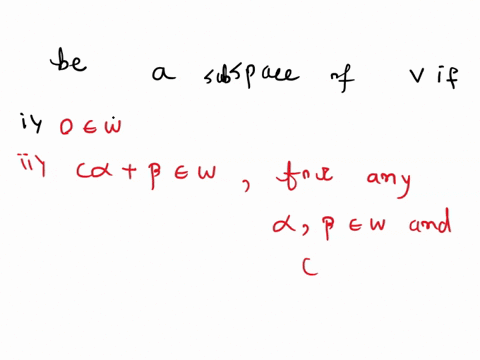 be a subspace of V if
i) 0 ∈ W
ii) cα + β ∈ W, for any
α, β ∈ W and
C